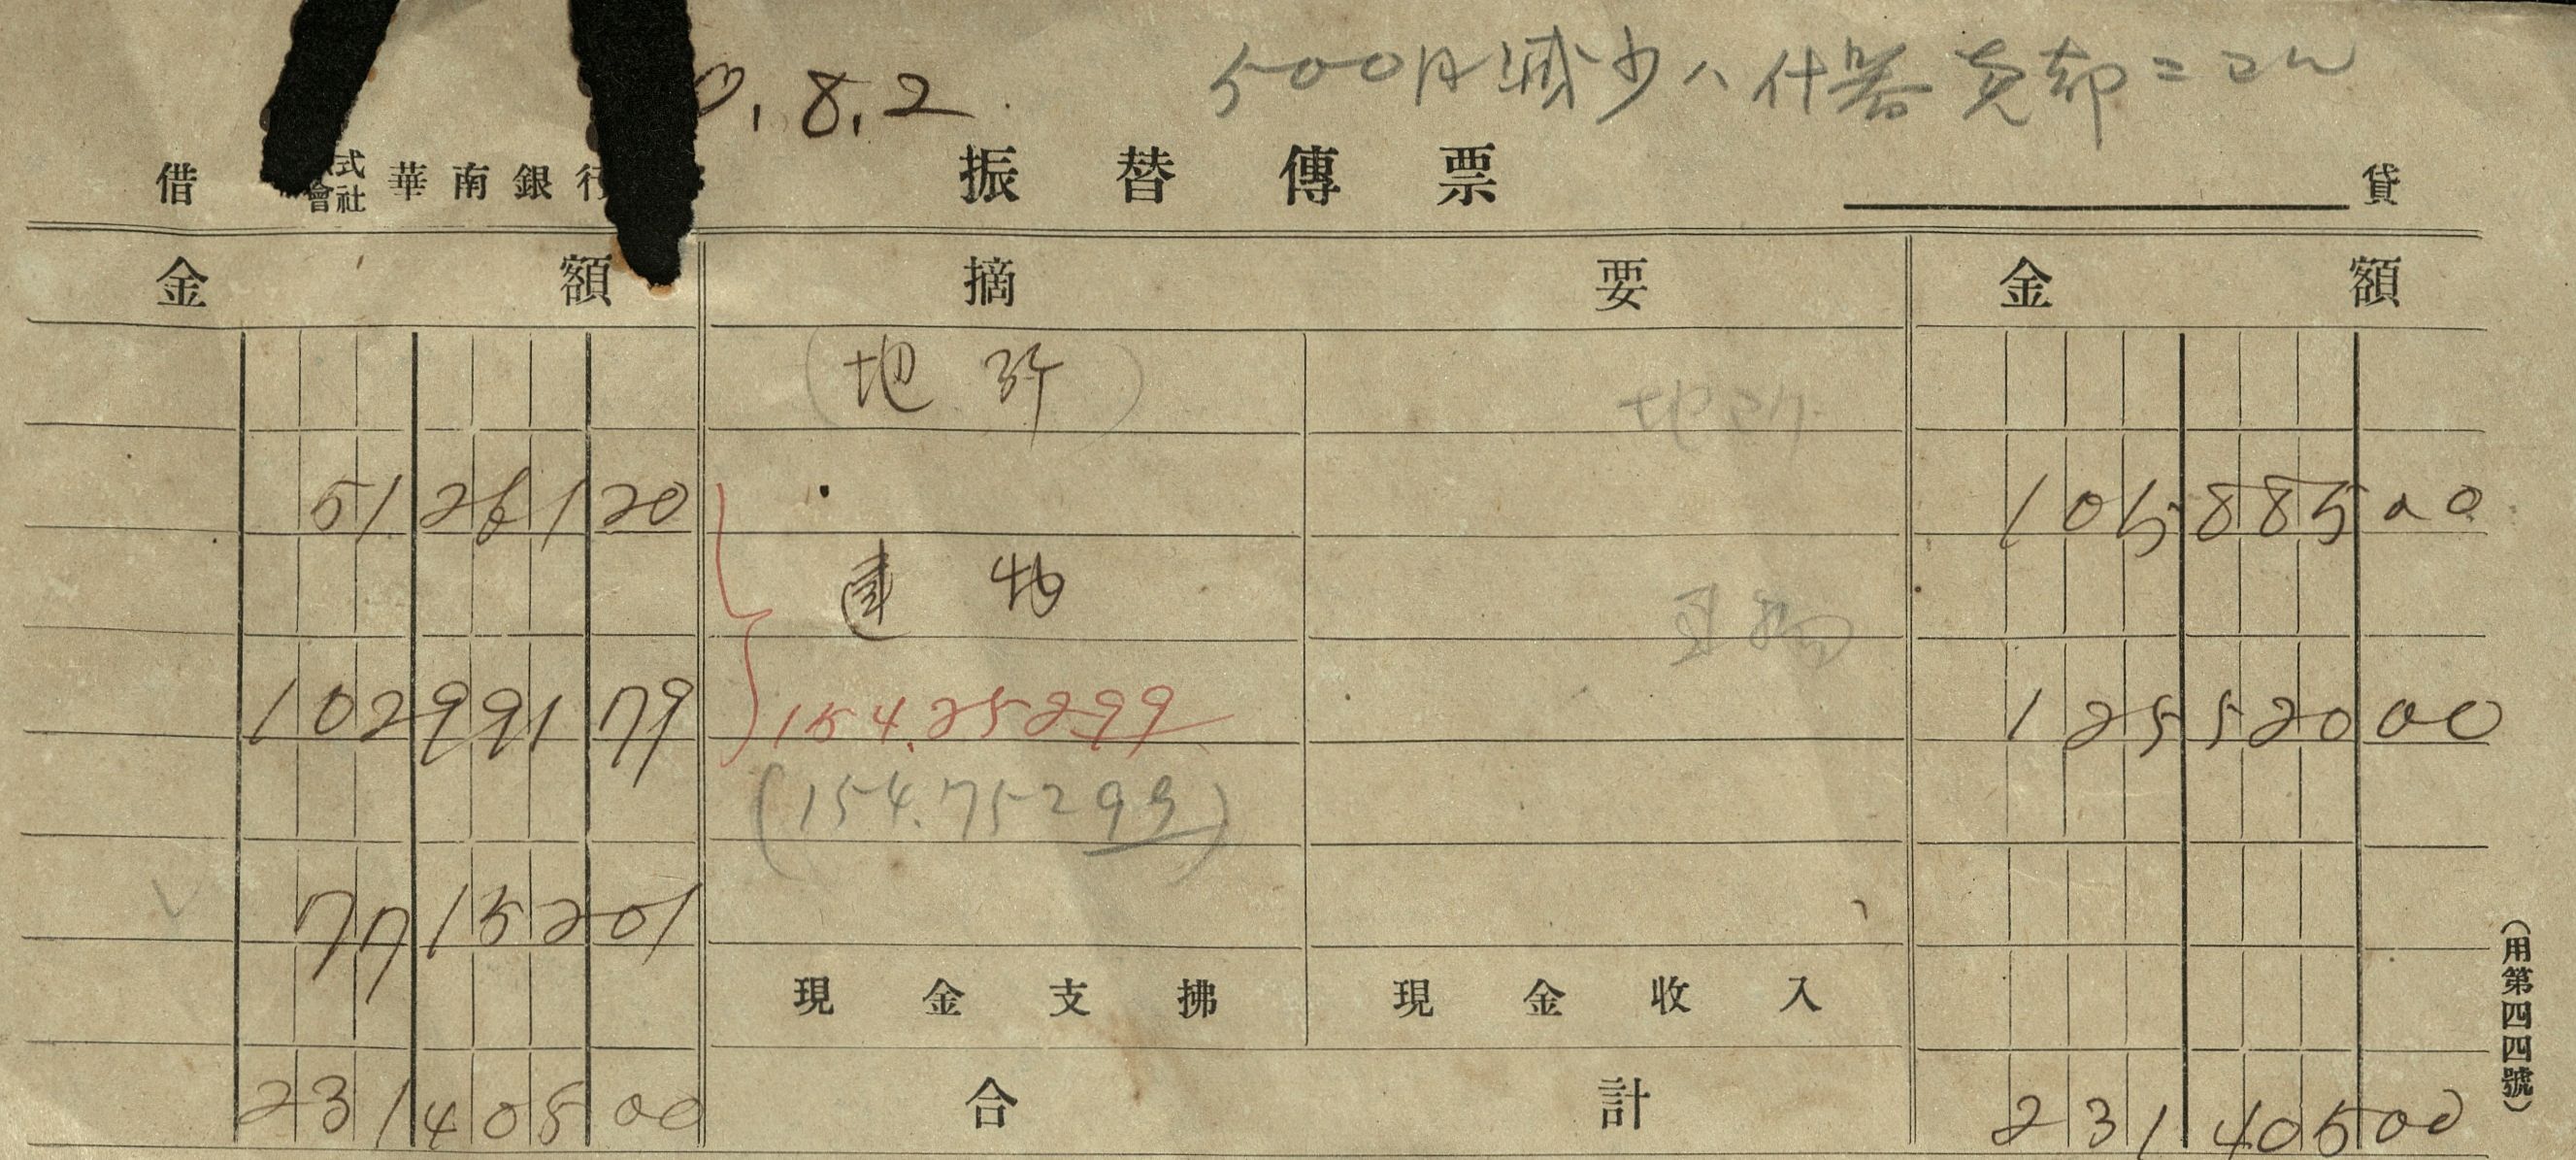 .8.2
500円減少ハ什器売却ニヨル
借 式會社 華南銀行 振替傳票 貸
金額 摘要 金額
(地所) 地所
51 261 20 105 885 00
建物
102 991 79 154.252 99 125 520 00
(154.752 99)
77 152 01
現金支拂 現金收入
231 405 00 合計 231 405 00
(用第四四號)